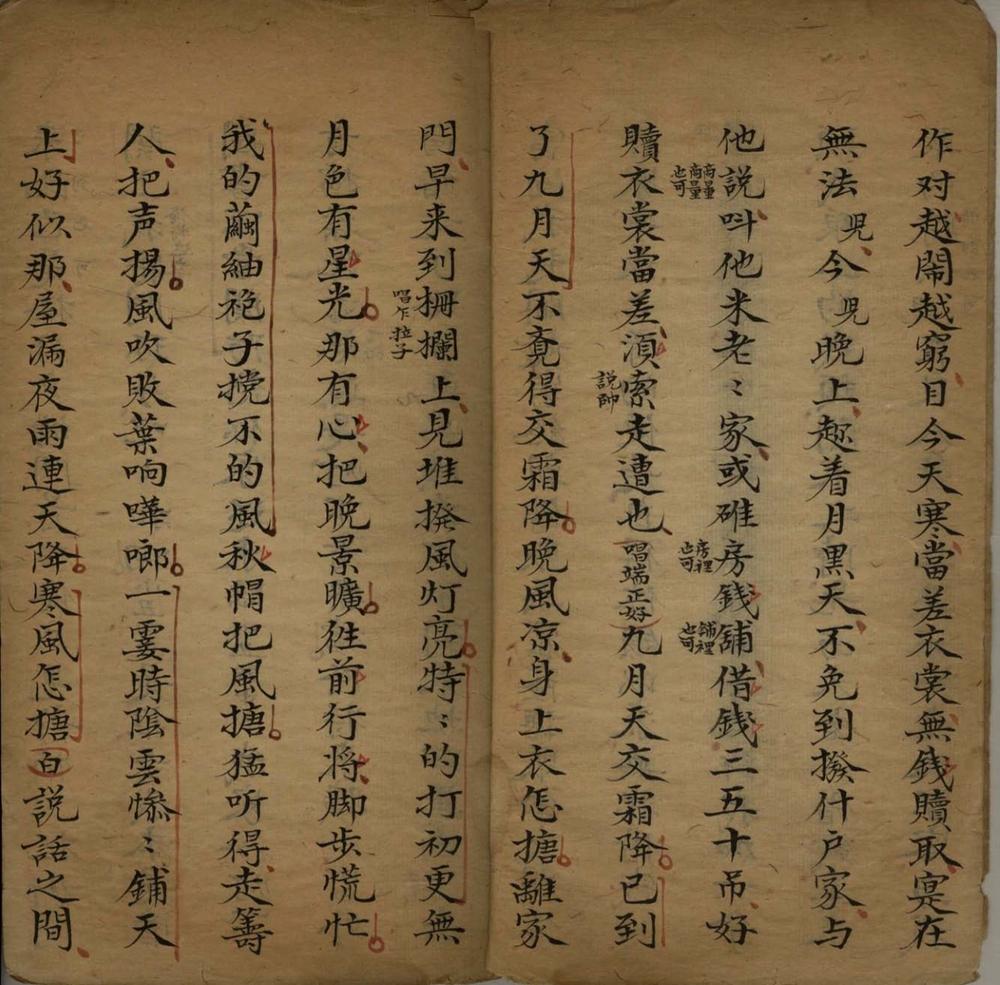 作对越鬧越窮目今天寒當差衣裳無錢贖取寔在
無法児今児晚上趂着月黑天不免到撥什户家与
他說叫他米老〻家或碓房錢舖借錢三五十吊好
商量商量也可
房裡也可
舖裡也可
贖衣裳當差湏索走遭也唱端正好九月天交霜降已到
說帥
了九月天不竟得交霜降晚風凉身上衣怎搪離家
門早来到柵欄上見堆撥風灯亮特〻的打初更無
唱乍拉子
月色有星光那有心把晚景曠徃前行将脚步慌忙
我的繭紬袍子攩不的風秋帽把風搪猛听得走籌
人把声揚風吹敗葉响嘩啷一霎時陰雲惨〻鋪天
上好似那屋漏夜雨連天降寒風怎搪白說話之間